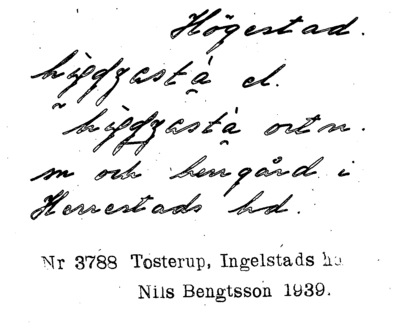 Högestad.
hi̯ǫʒastà el.
hi̯ǫʒastà ortn.
sn och herrgård i
Herrestads hd.
Nr 3788 Tosterup, Ingelstads hd
Nils Bengtsson 1939.